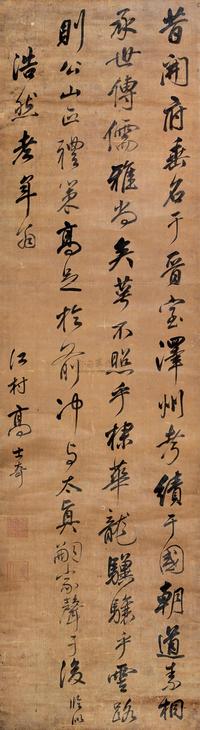 昔開府垂名于晉室澤州考績于國朝道素相
承世傳儒雅尚矣萼不照乎棣華龍驤驤乎雲路
則公山正禮策高足於前沖与太真嗣家聲于後臨似
浩然老年翁
江村高士奇